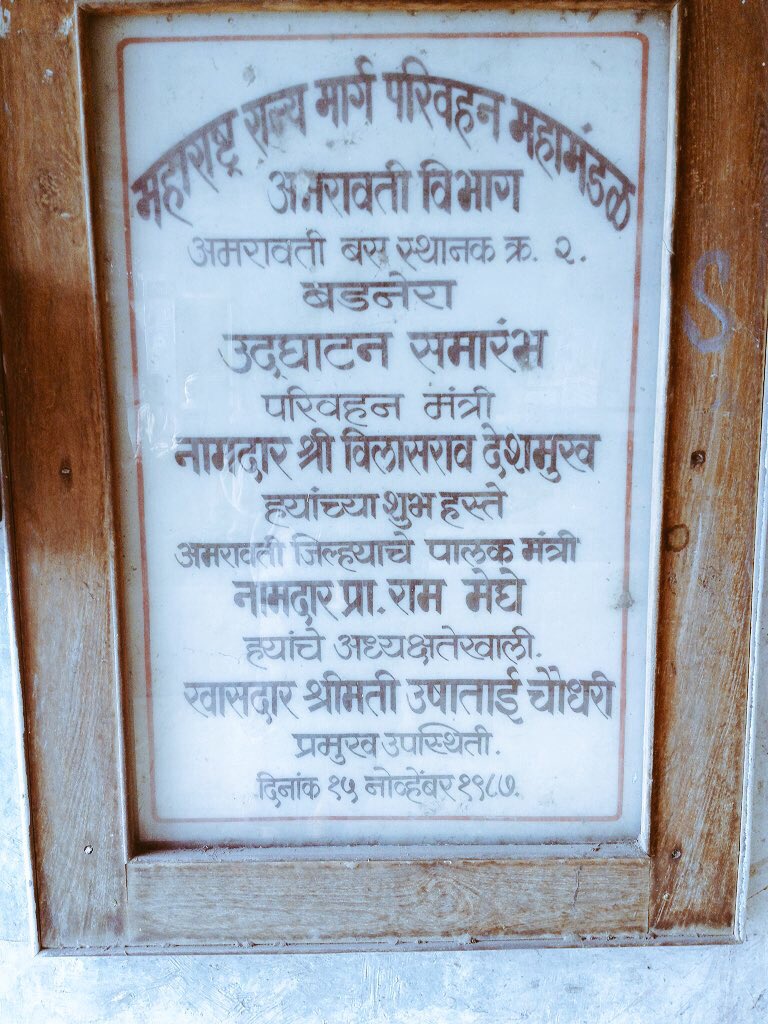 महाराष्ट्र राज्य मार्ग परिवहन महामंडळ
अमरावती विभाग
अमरावती बस स्थानक क्र. २.
बडनेरा
उद्घाटन समारंभ
परिवहन मंत्री
नामदार श्री विलासराव देशमुख
ह्यांच्या शुभ हस्ते
अमरावती जिल्ह्याचे पालक मंत्री
नामदार प्रा. राम मेघे
ह्यांचे अध्यक्षतेखाली.
खासदार श्रीमती उषाताई चौधरी
प्रमुख उपस्थिती.
दिनांक १५ नोव्हेंबर १९८७.
S